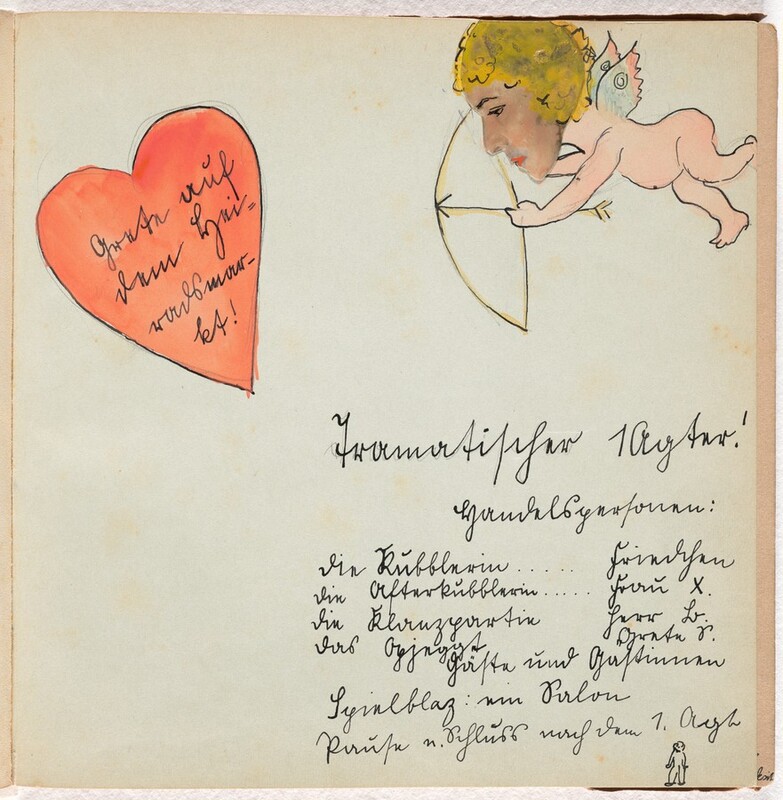 Grete auf
dem Hei-
radsmar-
kt!
Tramatischer 1Agter!
Handelspersonen:
die Kubblerin ..... Friedchen
die Afterkubblerin ..... Frau X.
die Klanzpartie Herr B.
das Opjeggt Grete S.
Gäste und Gastinnen
Spielblaz: ein Salon
Pause u. Schluss nach dem 1. Agt